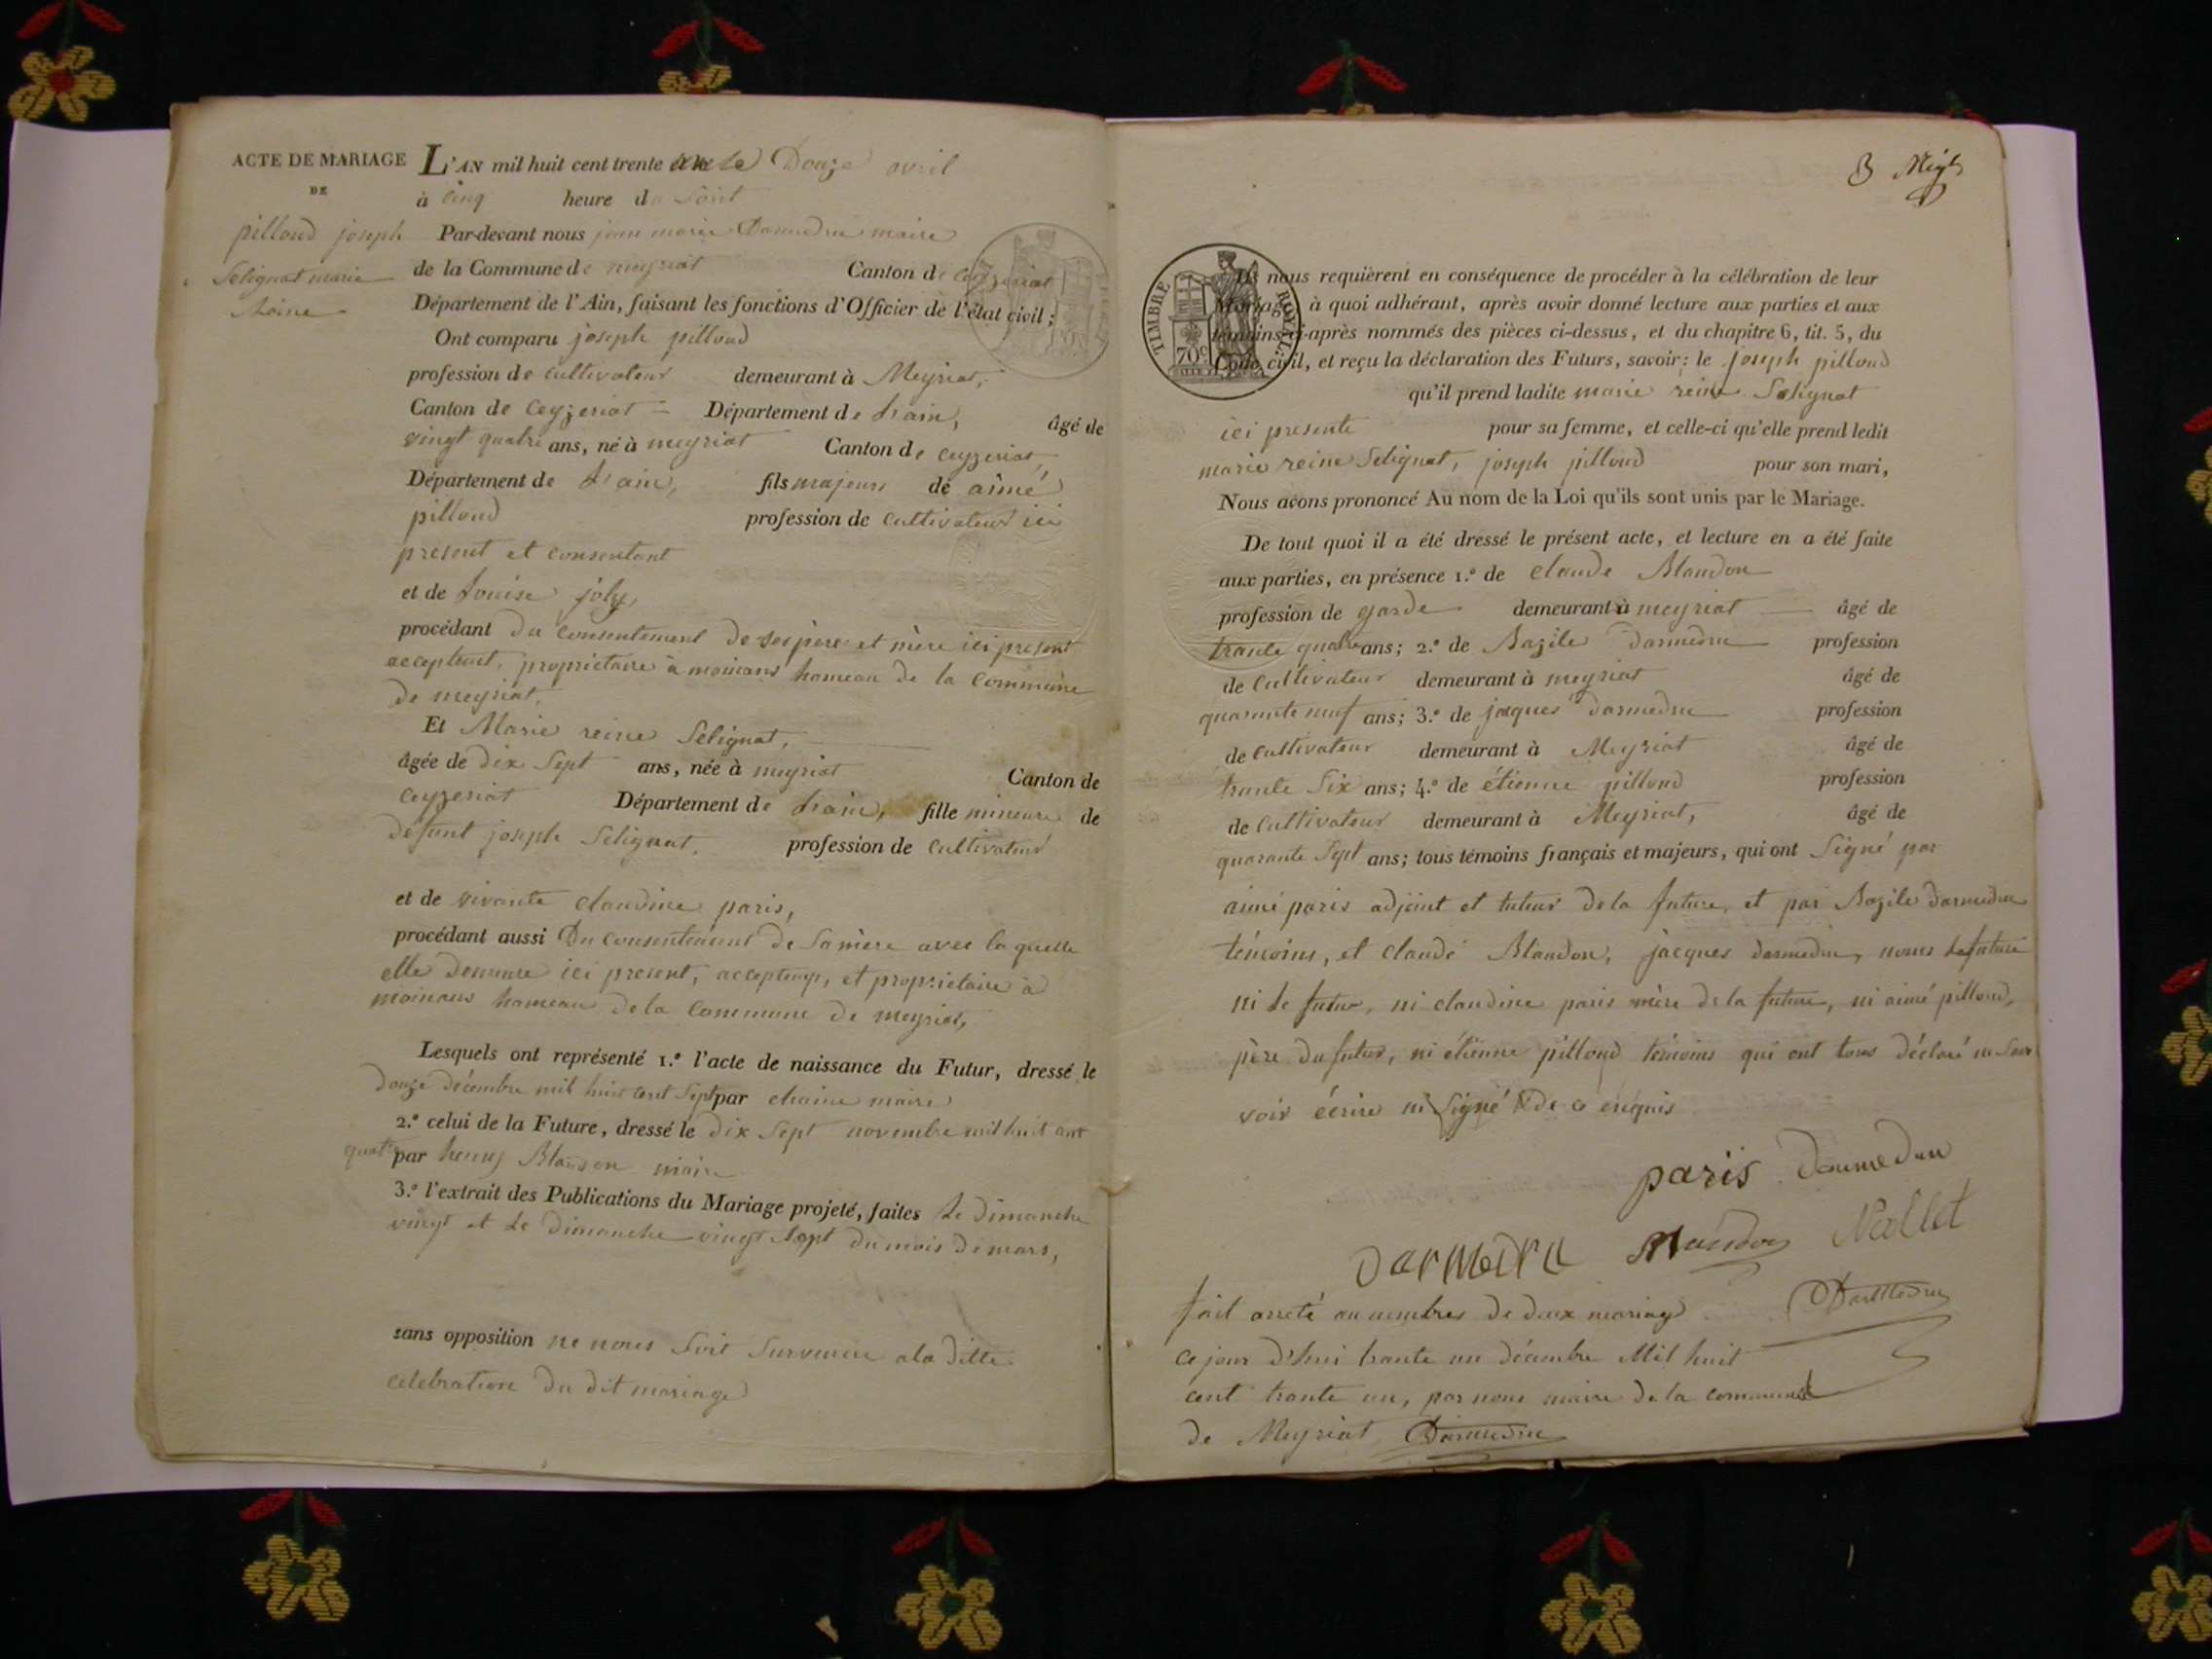 ACTE DE MARIAGE
DE
pilloud joseph
Selignat marie
Reine
L'AN mil huit cent trente un le Douze avril
à cinq heure du Soir
Par-devant nous jean marie Darmedru maire
de la Commune de meyriat Canton de Ceyzeriat
Département de l'Ain, faisant les fonctions d'Officier de l'état civil ;
Ont comparu joseph pilloud
profession de cultivateur demeurant à Meyriat,
Canton de Ceyzeriat Département de L'ain, âgé de
vingt quatre ans, né à meyriat Canton de ceyzeriat,
Département de L'ain, fils majeur de aimé
pilloud profession de cultivateur ici
present et consentant
et de Louise joly,
procédant du consentement de ses père et mère ici present
acceptent, proprietaire à moinans hameau de la Commune
de meyriat,
Et Marie reine Selignat,
âgée de dix Sept ans, née à meyriat Canton de
Ceyzeriat Département de L'ain, fille mineure de
défunt joseph Selignat, profession de Cultivateur
et de vivante claudine paris,
procédant aussi Du consentement de Sa mère avec la quelle
elle demeure ici present, acceptent, et proprietaire à
moinans hameau de la Commune de meyriat,
Lesquels ont représenté 1.º l'acte de naissance du Futur, dressé le
Douze décembre mil huit cent Sept par chaine maire
2.º celui de la Future, dressé le dix Sept novembre mil huit cent
quat par henry Blandon maire
3.º l'extrait des Publications du Mariage projeté, faites Le Dimanche
vingt et Le Dimanche vingt Sept du mois de mars,
sans opposition ne nous Soit Survenue a la ditte
celebration du dit mariage
3 Meyt
TIMBRE ROYAL
70 c
Ils nous requièrent en conséquence de procéder à la célébration de leur
Mariage, à quoi adhérant, après avoir donné lecture aux parties et aux
témoins ci-après nommés des pièces ci-dessus, et du chapitre 6, tit. 5, du
Code civil, et reçu la déclaration des Futurs, savoir : le joseph pilloud
qu'il prend ladite marie reine Selignat
ici presente pour sa femme, et celle-ci qu'elle prend ledit
marie reine Selignat, joseph pilloud pour son mari,
Nous avons prononcé Au nom de la Loi qu'ils sont unis par le Mariage.
De tout quoi il a été dressé le présent acte, et lecture en a été faite
aux parties, en présence 1.º de claude Blandon
profession de garde demeurant à meyriat âgé de
trante quatre ans ; 2.º de Bazile Darmedru profession
de Cultivateur demeurant à meyriat âgé de
quarante neuf ans ; 3.º de jacques Darmedru profession
de Cultivateur demeurant à Meyriat âgé de
trante Six ans ; 4.º de étienne pilloud profession
de Cultivateur demeurant à Meyriat, âgé de
quarante Sept ans ; tous témoins français et majeurs, qui ont Signé par
aimé paris adjoint et tuteur de la future, et par Bazile darmedru
témoins, et claude Blandon, jacques darmedru, la future
ni le futur, ni claudine paris mère de la future, ni aimé pilloud,
père du futur, ni étienne pilloud témoins qui ont tous déclaré ne Sa
voir écrire ni Signé de ce enquis
paris Darmedru
DarMeDru Blandon Nallet
Darmedru
fait arreté au nombres de deux mariage
ce jour d'hui trante un décembre Mil huit
cent trante un, par nous maire de la commune
de Meyriat Darmedru